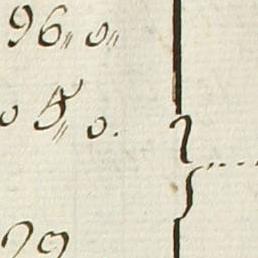 96„ 0„
0 5„ 0.
99